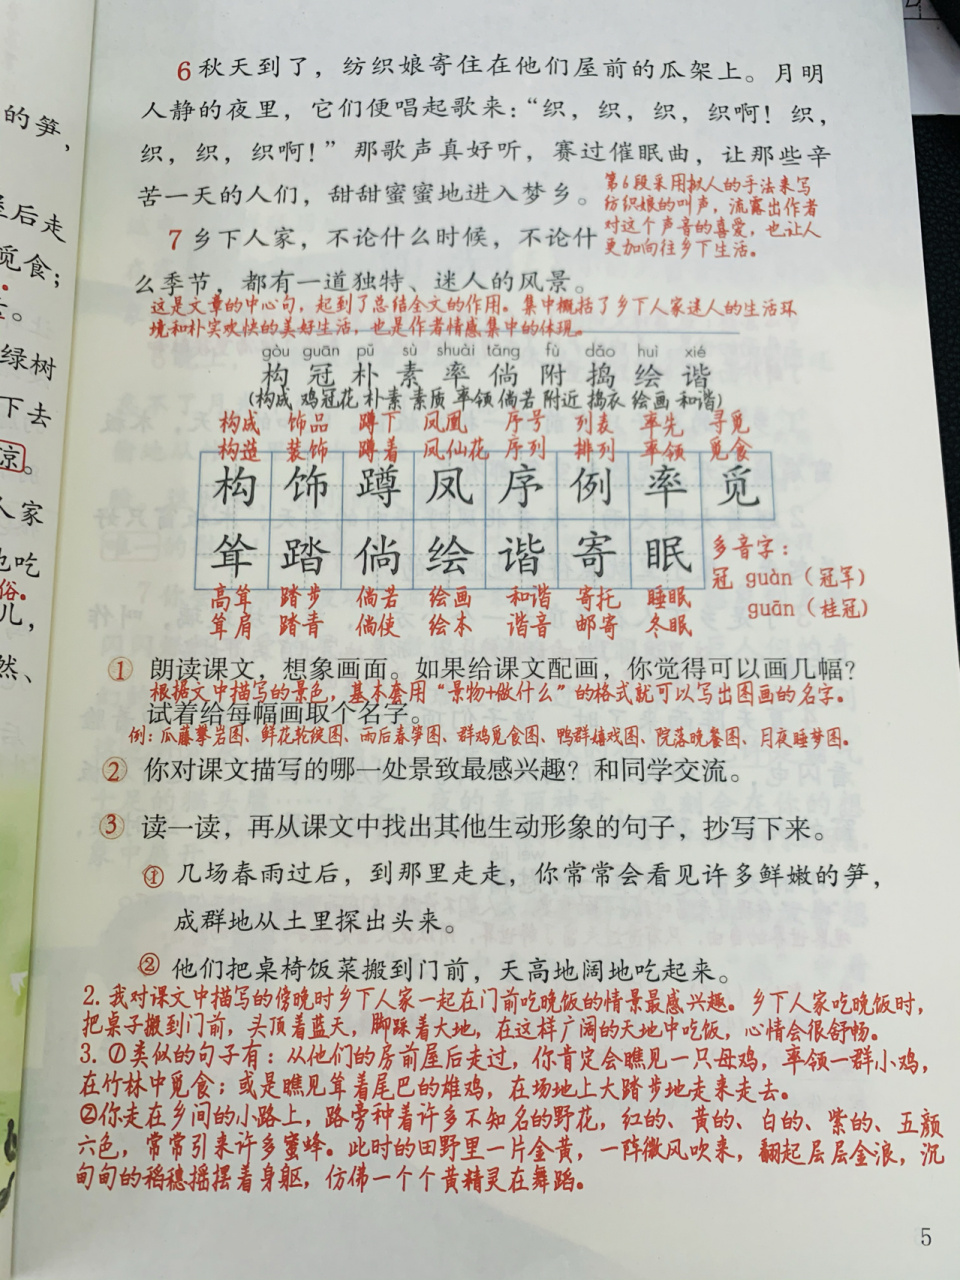 的笋，
屋后走
觅食；
绿树
下去
凉。
人家
也吃
俗。
儿，
然、
6 秋天到了，纺织娘寄住在他们屋前的瓜架上。月明
人静的夜里，它们便唱起歌来：“织，织，织，织啊！织，
织，织，织啊！”那歌声真好听，赛过催眠曲，让那些辛
苦一天的人们，甜甜蜜蜜地进入梦乡。
第6段采用拟人的手法来写
纺织娘的叫声，流露出作者
对这个声音的喜爱，也让人
更加向往乡下生活。
7 乡下人家，不论什么时候，不论什
么季节，都有一道独特、迷人的风景。
这是文章的中心句，起到了总结全文的作用。集中概括了乡下人家迷人的生活环
境和朴实欢快的美好生活，也是作者情感集中的体现。
gòu guān pǔ sù shuài tǎng fù dǎo huì xié
构 冠 朴 素 率 倘 附 捣 绘 谐
(构成 鸡冠花 朴素 素质 率领 倘若 附近 捣衣 绘画 和谐)
构成 饰品 蹲下 凤凰 序号 列表 率先 寻觅
构造 装饰 蹲着 凤仙花 序列 排列 率领 觅食
构 饰 蹲 凤 序 例 率 觅
耸 踏 倘 绘 谐 寄 眠
高耸 踏步 倘若 绘画 和谐 寄托 睡眠
耸肩 踏青 倘使 绘本 谐音 邮寄 冬眠
多音字：
冠 guàn（冠军）
guān（桂冠）
① 朗读课文，想象画面。如果给课文配画，你觉得可以画几幅？
根据文中描写的景色，基本套用“景物+做什么”的格式就可以写出图画的名字。
试着给每幅画取个名字。
例：瓜藤攀岩图、鲜花轮绽图、雨后春笋图、群鸡觅食图、鸭群嬉戏图、院落晚餐图、月夜睡梦图。
② 你对课文描写的哪一处景致最感兴趣？和同学交流。
③ 读一读，再从课文中找出其他生动形象的句子，抄写下来。
① 几场春雨过后，到那里走走，你常常会看见许多鲜嫩的笋，
成群地从土里探出头来。
② 他们把桌椅饭菜搬到门前，天高地阔地吃起来。
2. 我对课文中描写的傍晚时乡下人家一起在门前吃晚饭的情景最感兴趣。乡下人家吃晚饭时，
把桌子搬到门前，头顶着蓝天，脚踩着大地，在这样广阔的天地中吃饭，心情会很舒畅。
3. ①类似的句子有：从他们的房前屋后走过，你肯定会瞧见一只母鸡，率领一群小鸡，
在竹林中觅食；或是瞧见耸着尾巴的雄鸡，在场地上大踏步地走来走去。
②你走在乡间的小路上，路旁种着许多不知名的野花，红的、黄的、白的、紫的、五颜
六色，常常引来许多蜜蜂。此时的田野里一片金黄，一阵微风吹来，翻起层层金浪，沉
甸甸的稻穗摇摆着身躯，仿佛一个个黄精灵在舞蹈。
5